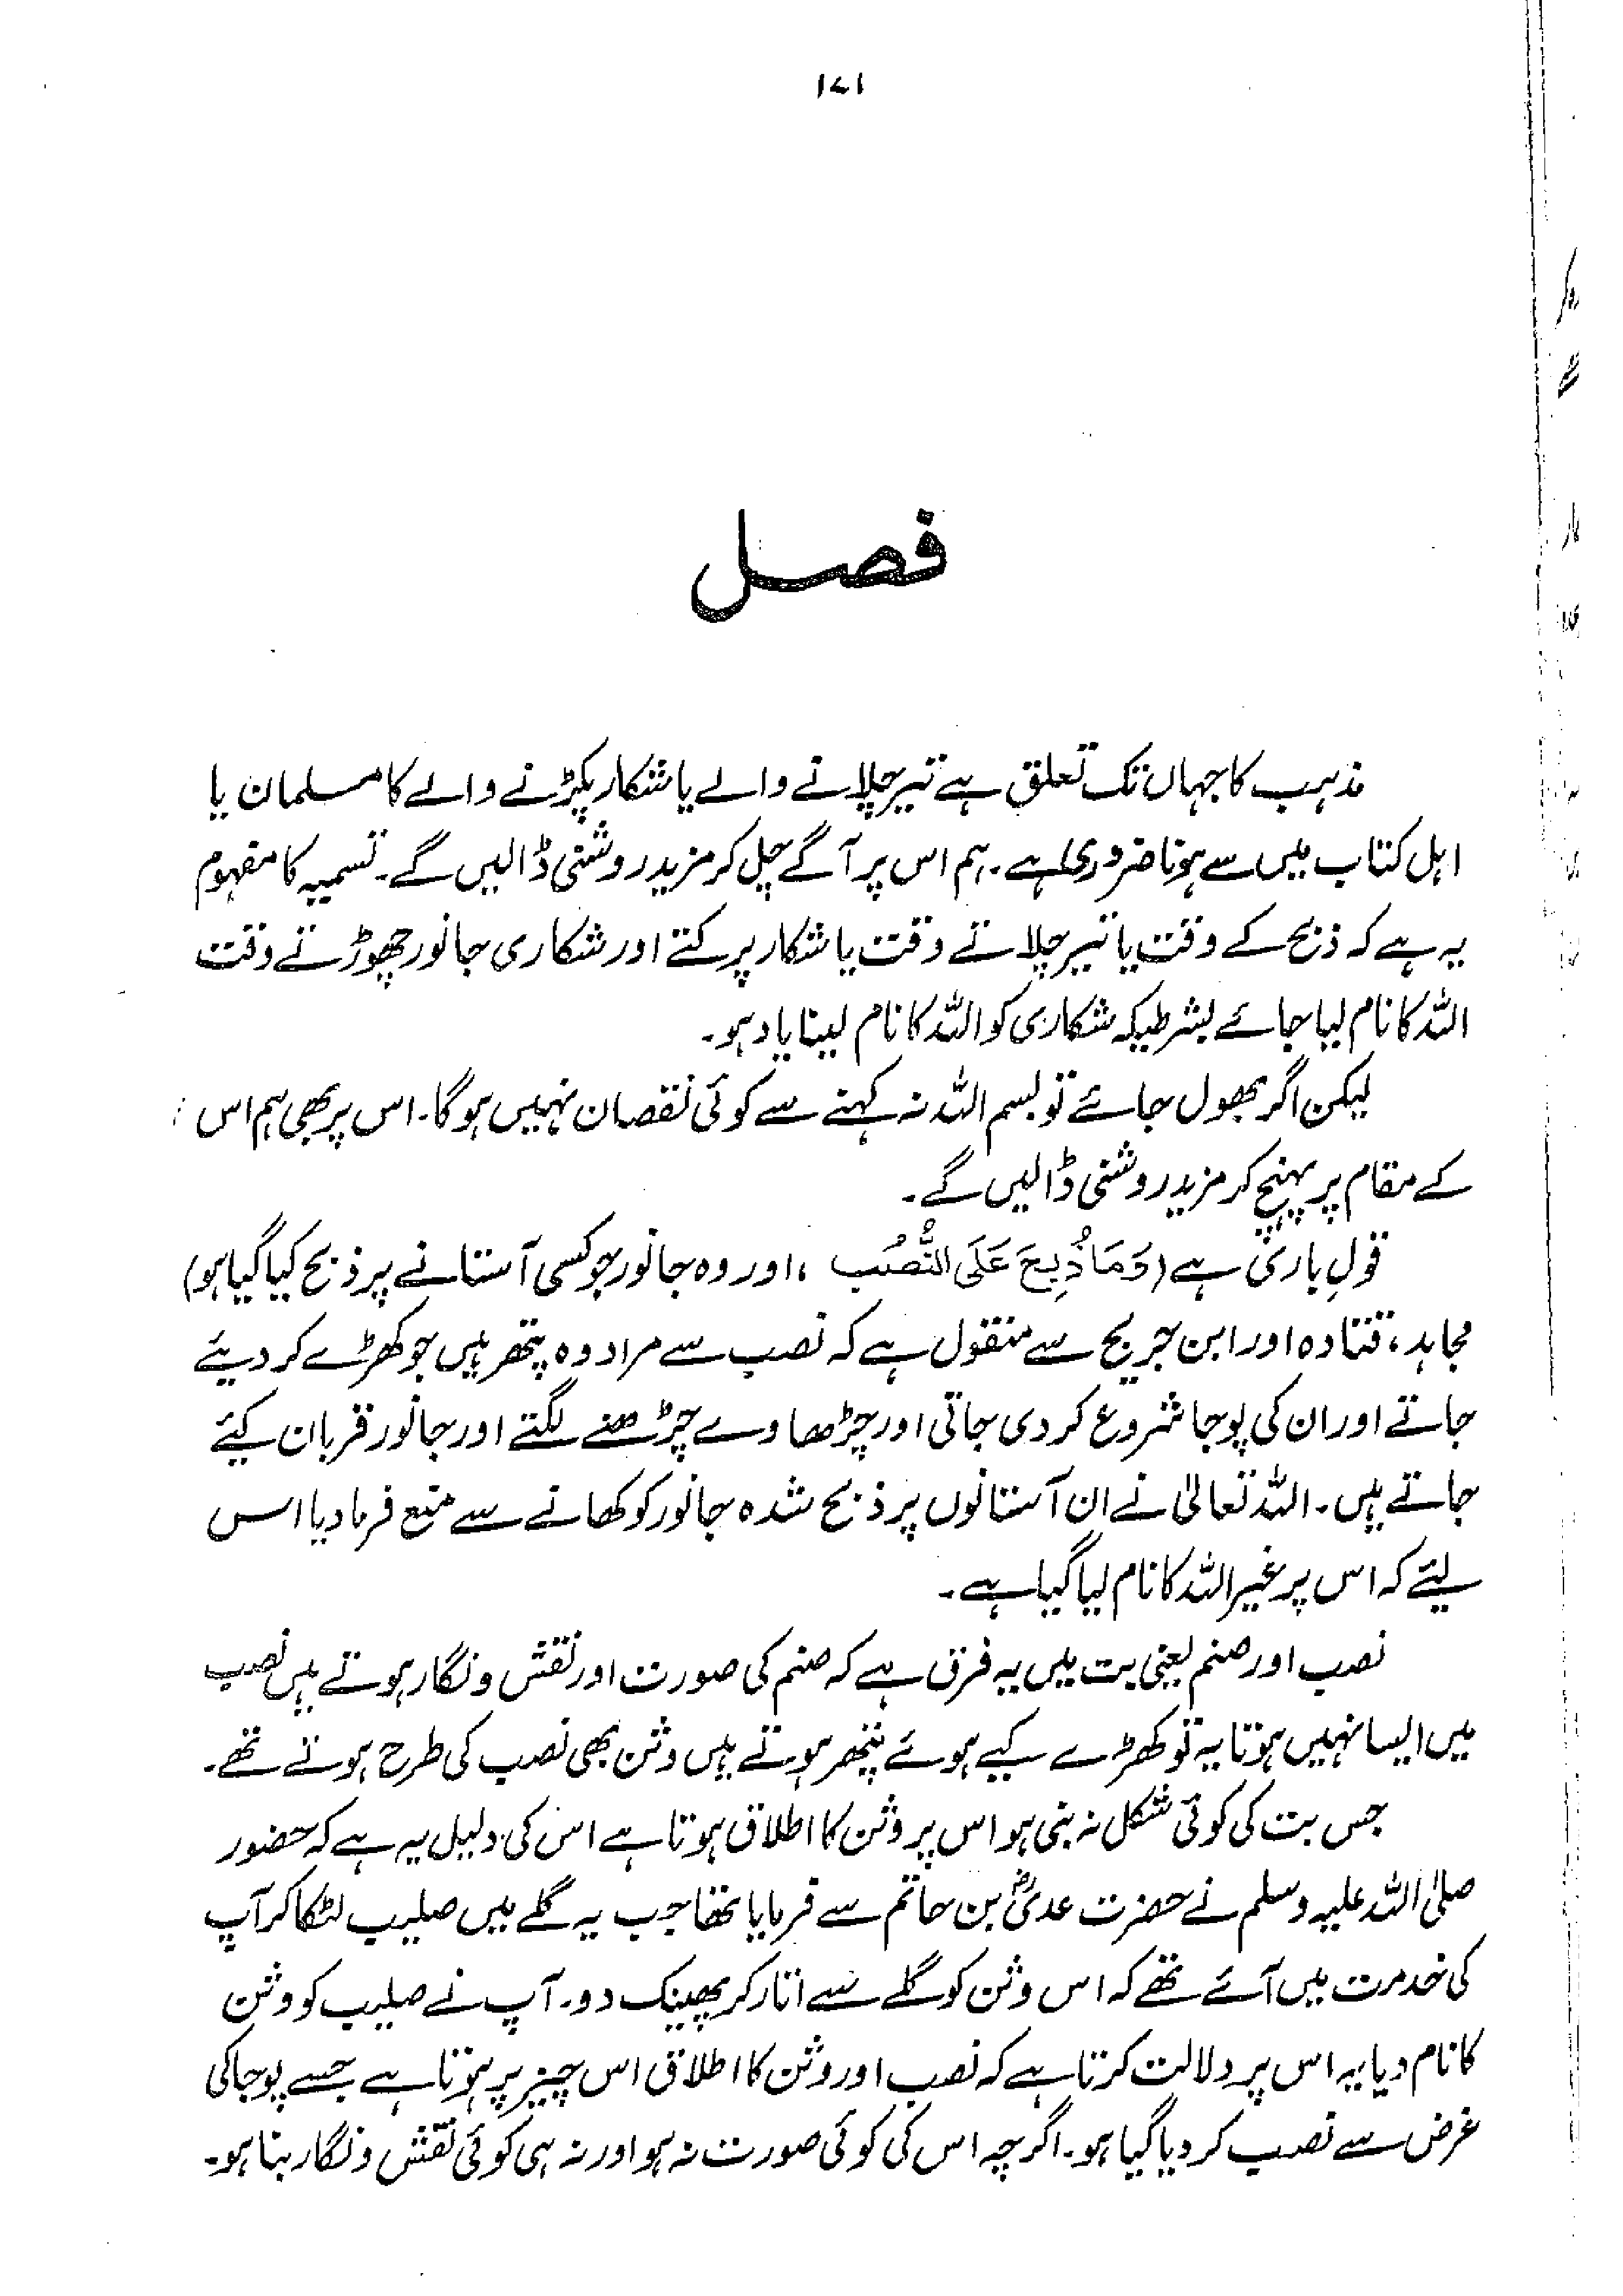 ۱۷۱
فصل
مذہب کا جہاں تک تعلق ہے تیر چلانے والے یا شکار پکڑنے والے کا مسلمان یا
اہل کتاب میں سے ہونا ضروری ہے۔ ہم اس پر آگے چل کر مزید روشنی ڈالیں گے۔ تسمیہ کا مفہوم
یہ ہے کہ ذبح کے وقت یا تیر چلاتے وقت یا شکار پر کتے اور شکاری جانور چھوڑتے وقت
اللہ کا نام لیا جائے بشرطیکہ شکاری کو اللہ کا نام لینا یاد ہو۔
لیکن اگر بھول جائے تو بسم اللہ نہ کہنے سے کوئی نقصان نہیں ہوگا۔ اس پر بھی ہم اس
کے مقام پر پہنچ کر مزید روشنی ڈالیں گے۔
قولِ باری ہے (وَمَا ذُبِحَ عَلَی النُّصُب ، اور وہ جانور جو کسی آستانے پر ذبح کیا گیا ہو)
مجاہد، قتادہ اور ابن جریج سے منقول ہے کہ نصب سے مراد وہ پتھر ہیں جو کھڑے کر دیئے
جاتے اور ان کی پوجا شروع کر دی جاتی اور چڑھاوے چڑھنے لگتے اور جانور قربان کئے
جاتے ہیں۔ اللہ تعالیٰ نے ان آستانوں پر ذبح شدہ جانور کو کھانے سے منع فرما دیا اس
لیئے کہ اس پر غیر اللہ کا نام لیا گیا ہے۔
نصب اور صنم یعنی بت میں یہ فرق ہے کہ صنم کی صورت اور نقش و نگار ہوتے ہیں نصب
میں ایسا نہیں ہوتا یہ تو کھڑے کیے ہوئے پتھر ہوتے ہیں وثن بھی نصب کی طرح ہوتے تھے۔
جس بت کی کوئی شکل نہ بنی ہو اس پر وثن کا اطلاق ہوتا ہے اس کی دلیل یہ ہے کہ حضور
صلی اللہ علیہ وسلم نے حضرت عدیؓ بن حاتم سے فرمایا تھا جب یہ گلے میں صلیب لٹکا کر آپ
کی خدمت میں آئے تھے کہ اس وثن کو گلے سے اتار کر پھینک دو۔ آپ نے صلیب کو وثن
کا نام دیا یہ اس پر دلالت کرتا ہے کہ نصب اور وثن کا اطلاق اس چیز پر ہوتا ہے جسے پوجا کی
غرض سے نصب کر دیا گیا ہو۔ اگرچہ اس کی کوئی صورت نہ ہو اور نہ ہی کوئی نقش و نگار بنا ہو۔